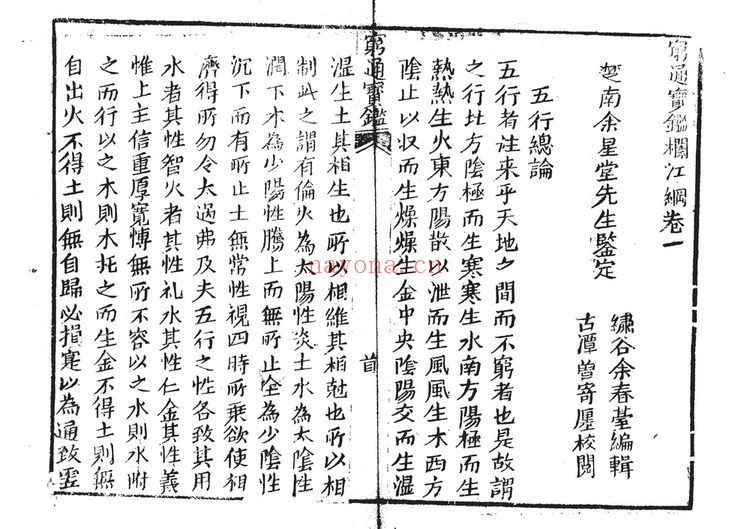 窮通寶鑑欄江網卷一
楚南余星堂先生鑒定
繡谷余春臺編輯
古潭曾寄厪校閱
五行總論
五行者往來乎天地之間而不窮者也是故謂
之行北方陰極而生寒寒生水南方陽極而生
熱熱生火東方陽散以泄而生風風生木西方
陰止以収而生燥燥生金中央陰陽交而生湿
窮通寶鑑
首
湿生土其相生也所以相維其相尅也所以相
制此之謂有倫火為太陽性炎土水為太陰性
潤下木為少陽性騰上而無所止金為少陰性
沉下而有所止土無常性視四時所乘欲使相
濟得所勿令太過弗及夫五行之性各致其用
水者其性智火者其性礼水其性仁金其性義
惟上主信重厚寬愽無所不容以之水則水附
之而行以之木則木托之而生金不得土則無
自出火不得土則無自歸必損寔以為通致虛
nayona.cn